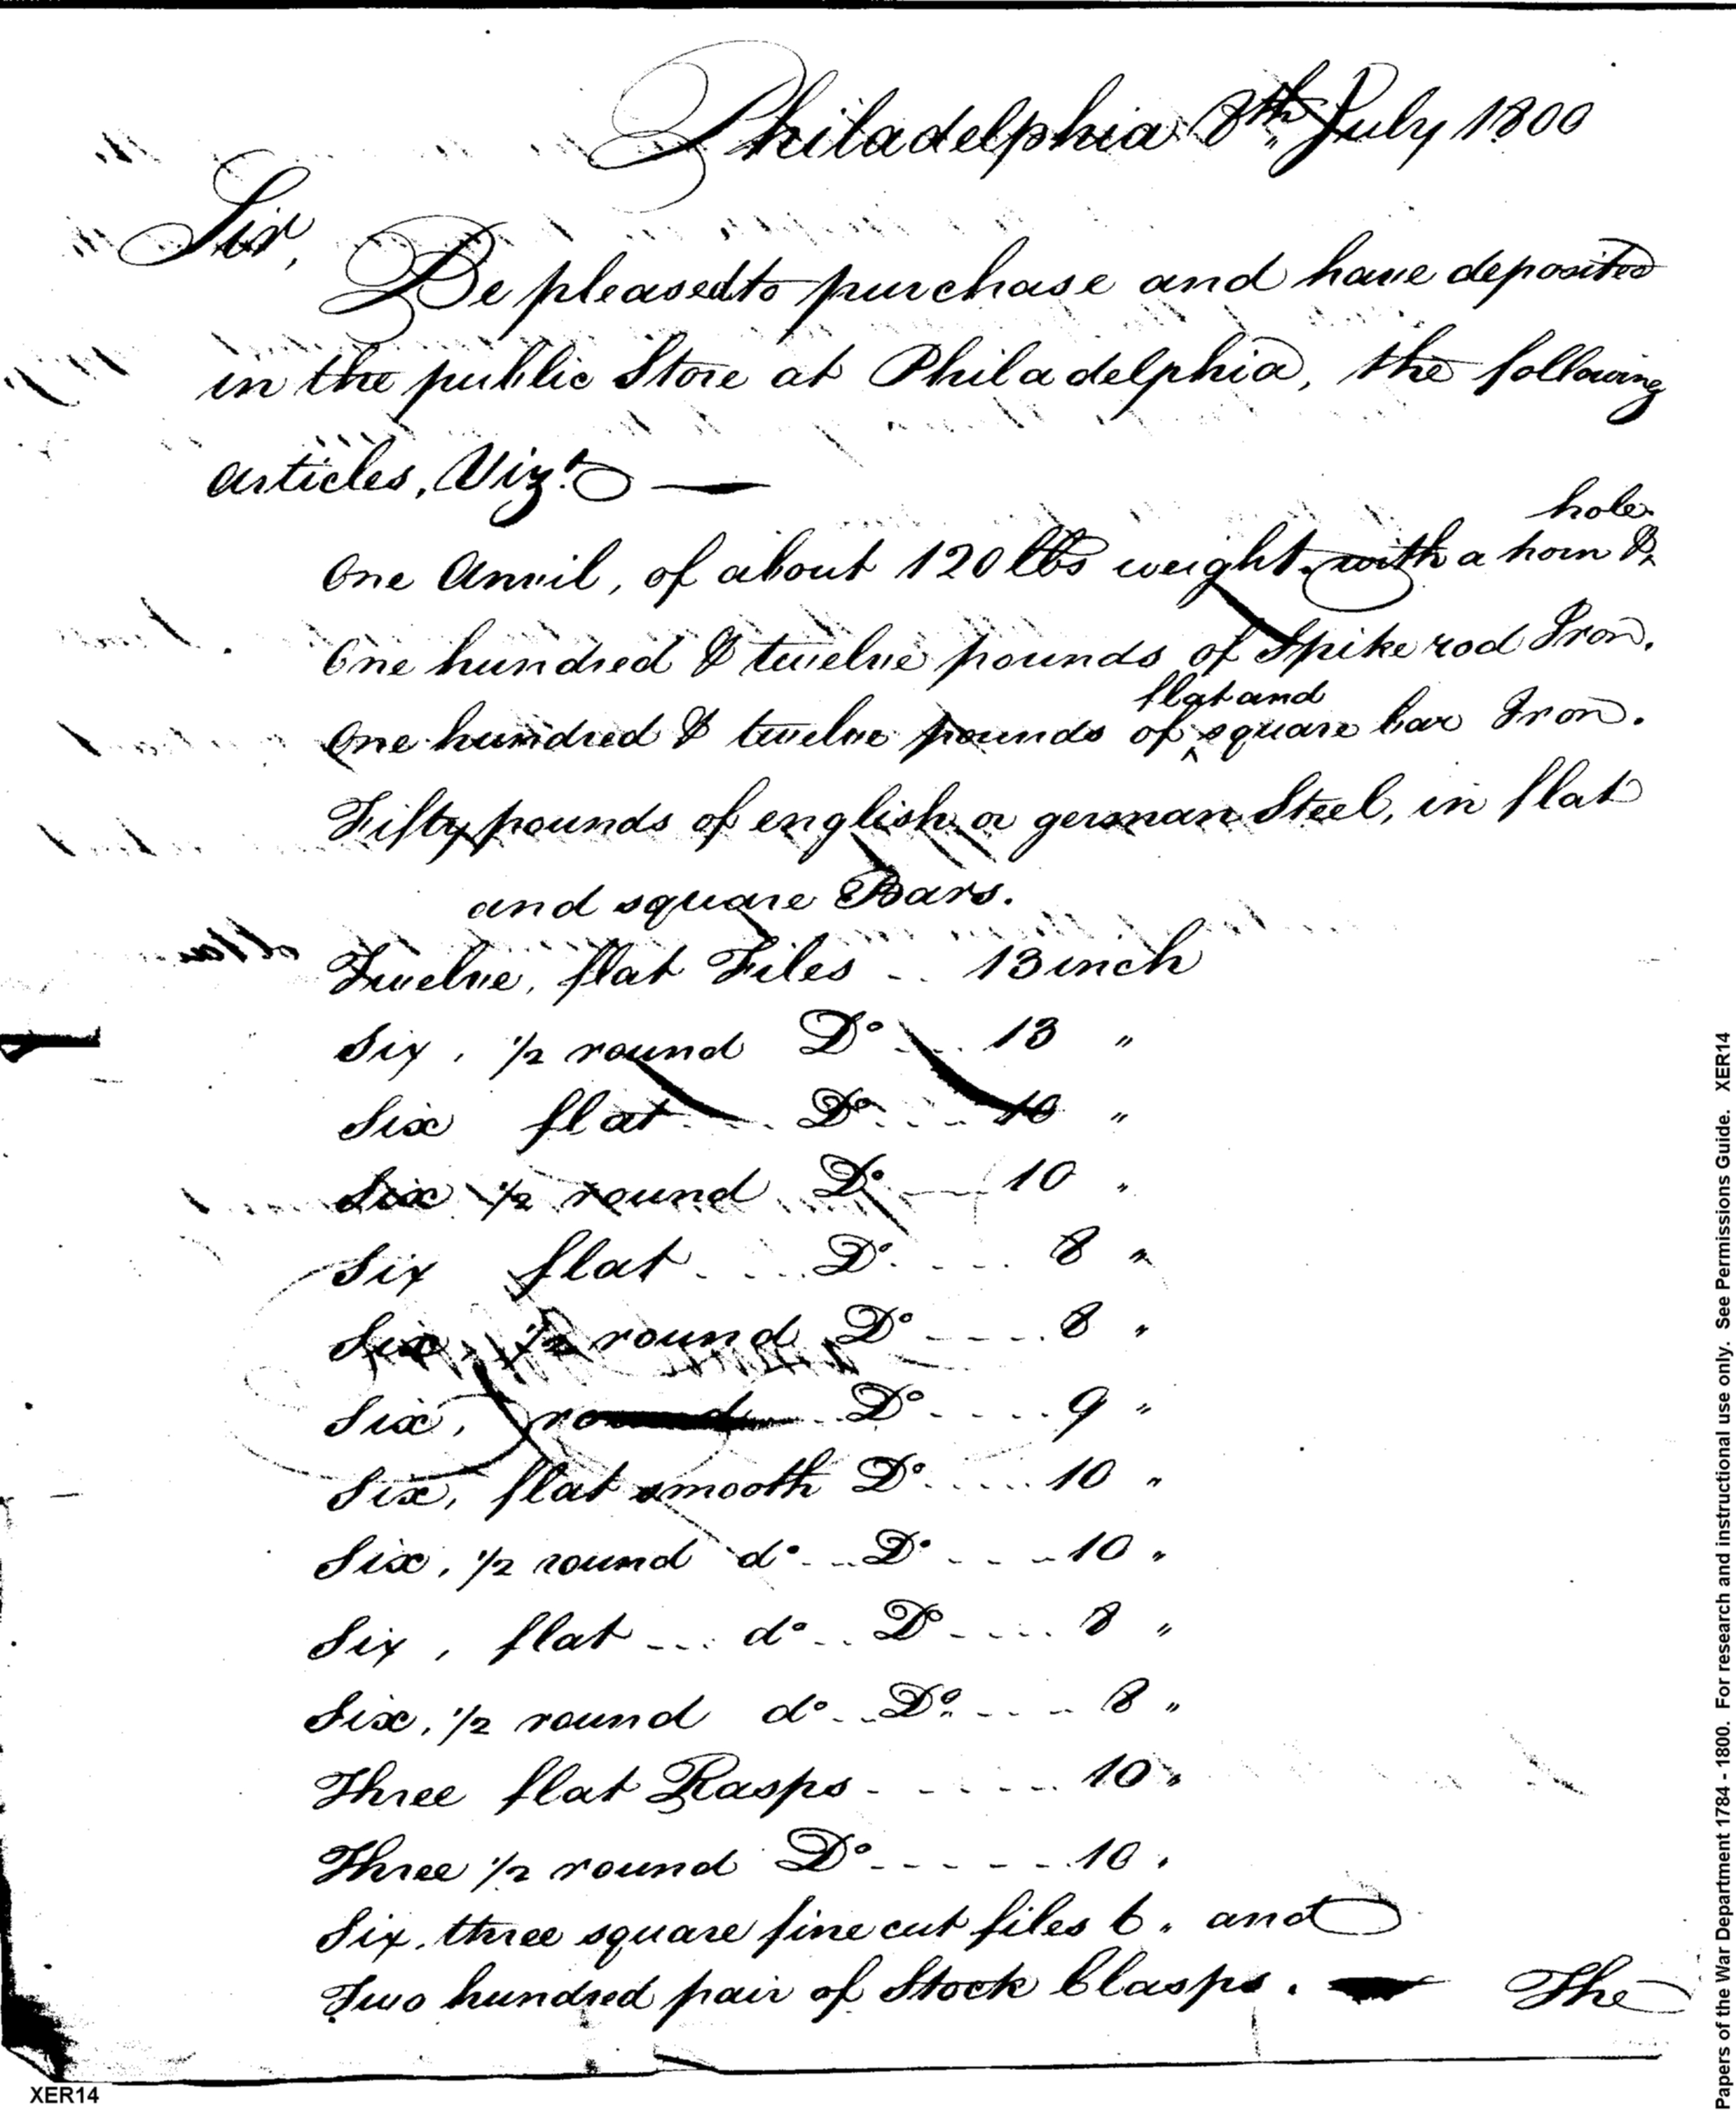 Philadelphia 8th July 1800
Sir,
Be pleased to purchase and have deposited
in the public Store at Philadelphia, the following
articles, Vizt. —
hole
One Anvil, of about 120 lbs weight. with a horn &
One hundred & twelve pounds of Spike rod Iron.
flat and
One hundred & twelve pounds of ^ square bar Iron.
Fifty pounds of english or german Steel, in flat
and square Bars.
Twelve, flat Files .. 13 inch
Six, 1/2 round Do .... 13 "
Six flat .... Do .... 10 "
Six 1/2 round Do .... 10 "
Six flat .... Do .... 8 "
Six, 1/2 round Do .... 8 "
Six, round .. Do .... 9 "
Six, flat smooth Do .... 10 "
Six, 1/2 round do .. Do .... 10 "
Six, flat ... do .. Do .... 8 "
Six, 1/2 round do .. Do .... 8 "
Three flat Rasps ...... 10 "
Three 1/2 round Do ...... 10 "
Six, three square fine cut files 6 " and
Two hundred pair of Stock Clasps. — The
XER14
Papers of the War Department 1784 - 1800. For research and instructional use only. See Permissions Guide. XER14